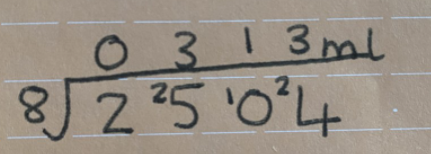 0 3 1 3ml
8 2 ²5 ¹0 ²4